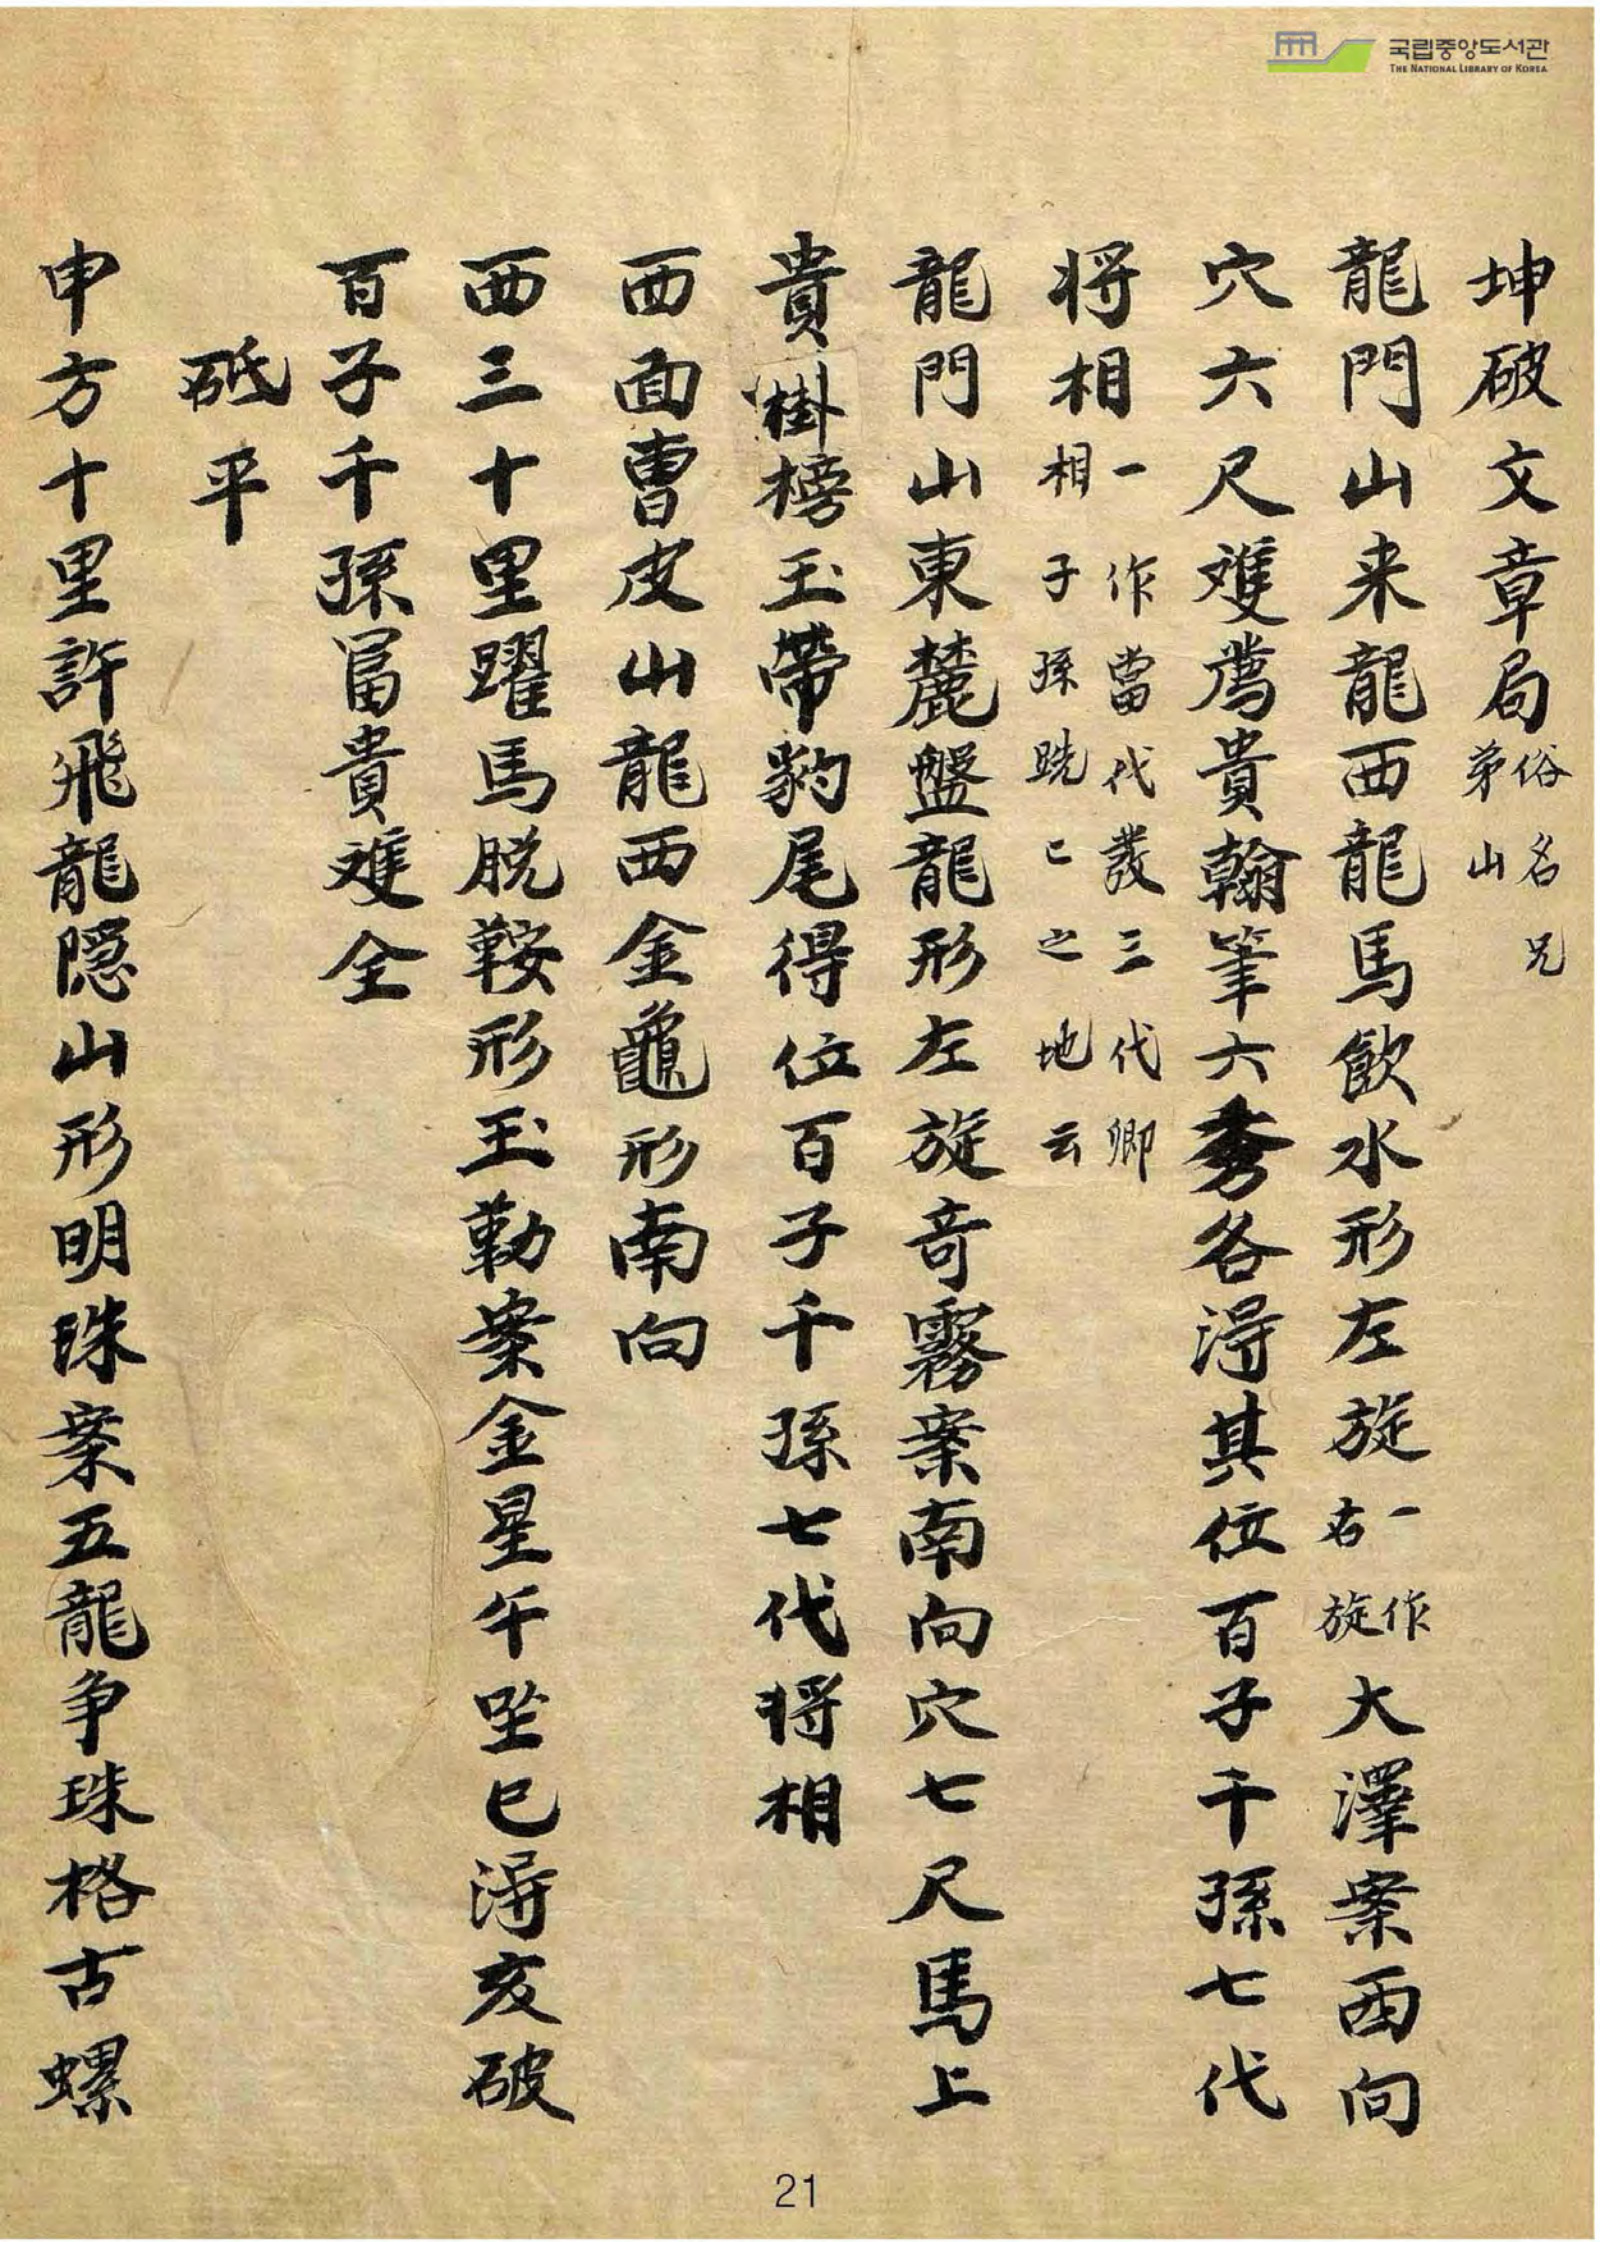 국립중앙도서관
THE NATIONAL LIBRARY OF KOREA
坤破文章局俗名兄弟山
龍門山来龍西龍馬飮水形左旋一作右旋大澤案西向
穴六尺䧺鴈貴翰筆六秀各淂其位百子千孫七代
将相一作當代發三代卿相子孫䟱〻之地云
龍門山東麓盤龍形左旋奇霧案南向穴七尺馬上
貴掛榜玉帶豹尾得位百子千孫七代将相
西面曺皮山龍西金龜形南向
西三十里躍馬脱鞍形玉勒案金星午坐巳淂亥破
百子千孫冨貴䨇全
砥平
申方十里許飛龍隠山形明珠案五龍争珠格古螺
21